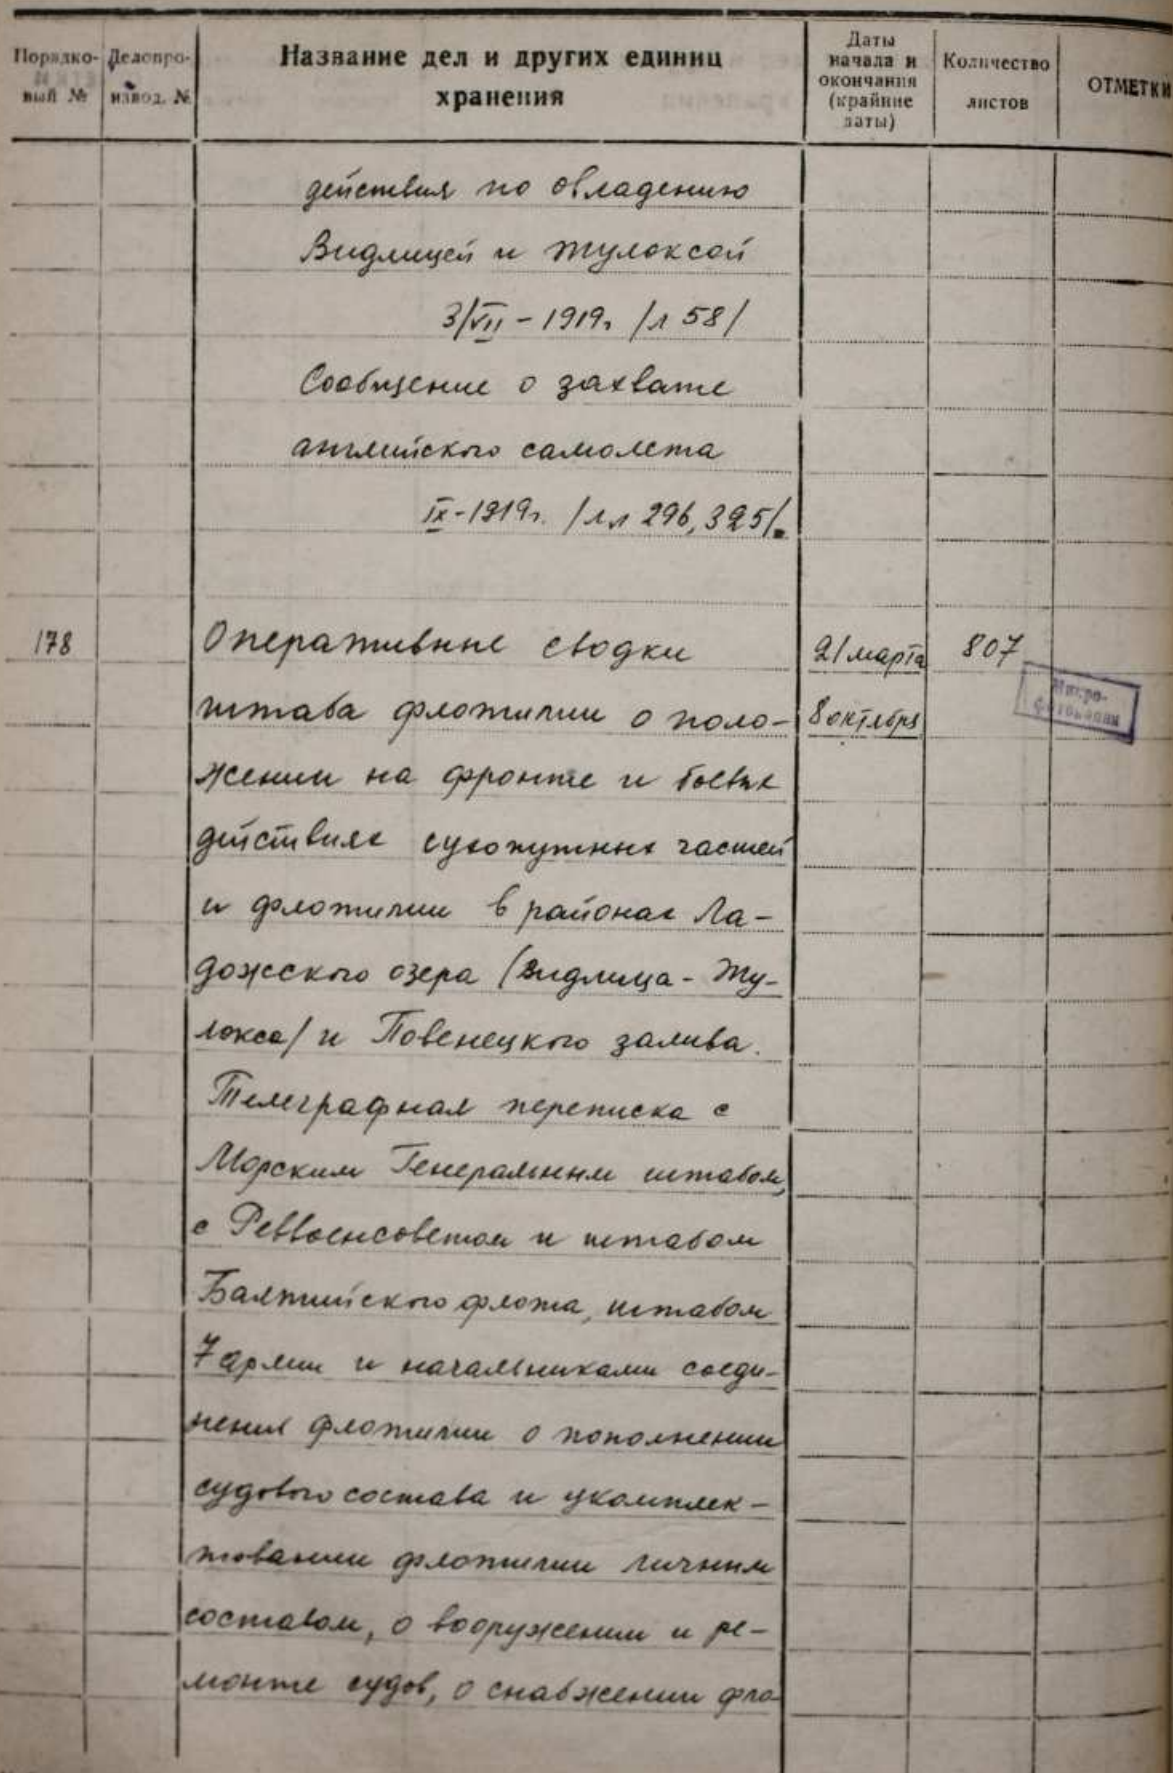 Порядко-
вый №
Делопро-
извод. №
Название дел и других единиц
хранения
Даты
начала и
окончания
(крайние
даты)
Количество
листов
ОТМЕТКИ
действия по овладению
Видлицей и Тулоксой
3/VII - 1919г /л 58/
Сообщение о захвате
английского самолета
IX-1919г. /лл 296, 325/.
178
Оперативные сводки
21 марта
807
штаба флотилии о поло-
8 октября
Микро-
фотокопии
жении на фронте и боевых
действиях сухопутных частей
и флотилии в районах Ла-
дожского озера (Видлица - Ту-
локса/ и Повенецкого залива.
Телеграфная переписка с
Морским Генеральным штабом,
с Реввоенсоветом и штабом
Балтийского флота, штабом
7 армии и начальниками соеди-
нения флотилии о пополнении
судового состава и укомплек-
товании флотилии личным
составом, о вооружении и ре-
монте судов, о снабжении фло